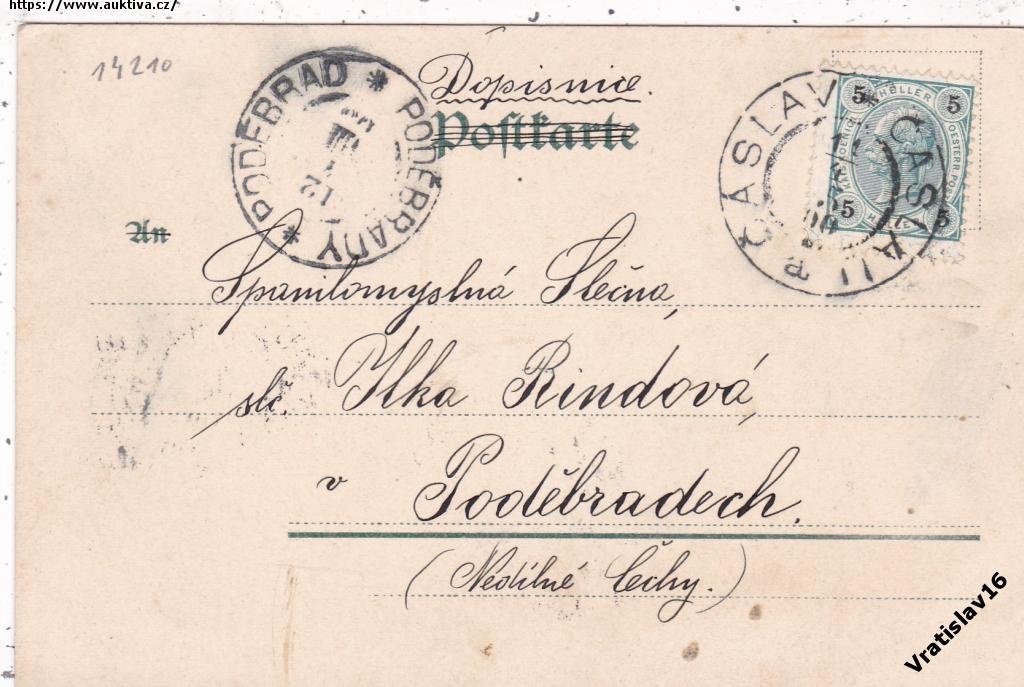 https://www.auktiva.cz/
14210
Dopisnice.
Postkarte
PODĚBRADY * PODĚBRAD *
12
ČÁSLAV * ČASLAU
5 5
5 5
HELLER
An
Spanilomyslná Slečna,
slč. Ilka Rindová,
v Poděbradech.
(Nedílné Čechy.)
Vratislav16